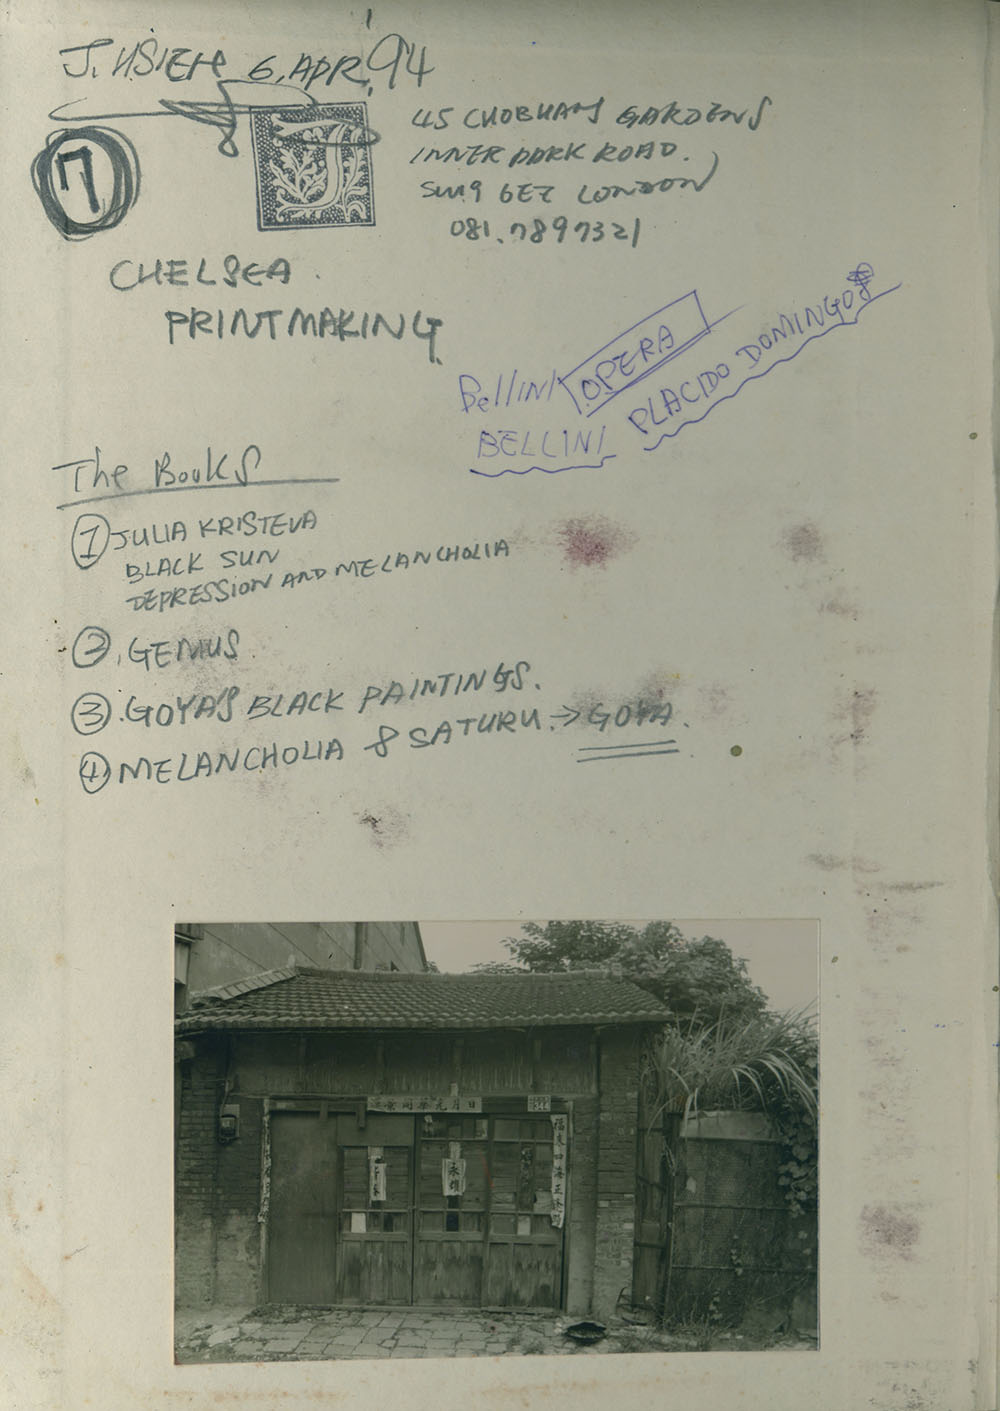 J. HSIEH 6, APR, '94
7
J
45 CHOBHAM GARDENS
INNER PARK ROAD.
SW19 6EZ LONDON
081.7897321
CHELSEA.
PRINTMAKING
Bellini OPERA
BELLINI PLACIDO DOMINGO
The Books
① JULIA KRISTEVA
BLACK SUN
DEPRESSION AND MELANCHOLIA
②. GENIUS.
③. GOYA'S BLACK PAINTINGS.
④ MELANCHOLIA & SATURU. → GOYA.
日月元
永
福來四海正